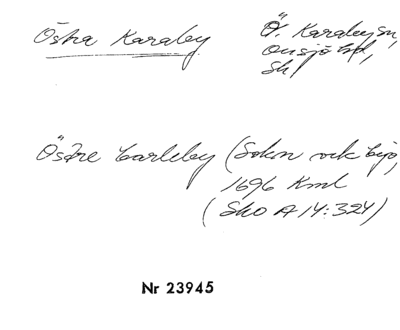 Östra Karaby
Ö. Karaby sn,
Onsjö hd,
Sk
Östre Carleby (Sokn och by),
1696 Kml
(Sko A 14:324)
Nr 23945